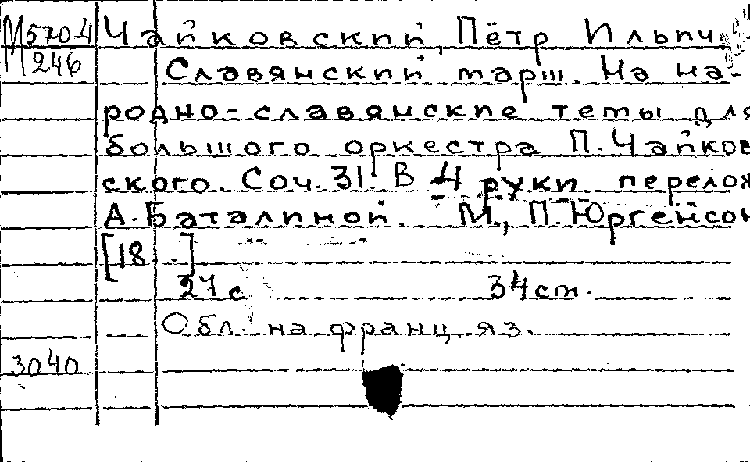 М5704 Чайковский, Пётр Ильич.
М246 Славянский марш. На на-
родно-славянские темы для
большого оркестра П. Чайков
ского. Соч. 31. В 4 руки перелож
А. Баталиной. М., П. Юргенсон
[18..]
27 с. 34 см.
Обл. на франц. яз.
3040